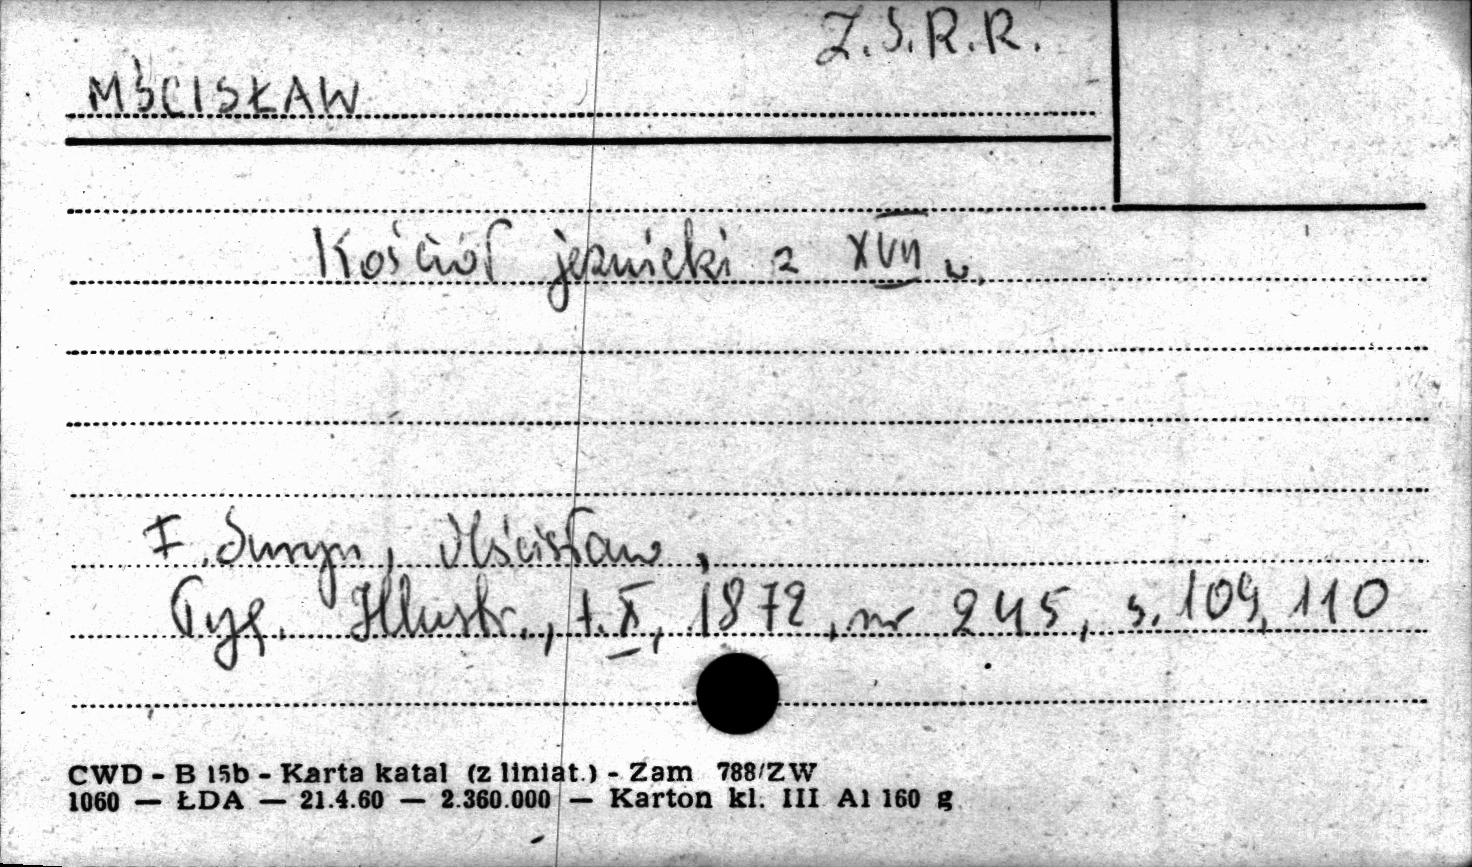 Z.S.R.R.
MŚCISŁAW
Kościół jezuicki z XVII w.
F. Suryn, Mścisław,
Tyg. Illustr., t. X, 1872, nr 245, s. 109, 110
CWD - B 15b - Karta katal (z liniat.) - Zam 788/ZW
1060 — ŁDA — 21.4.60 — 2.360.000 — Karton kl. III A1 160 g